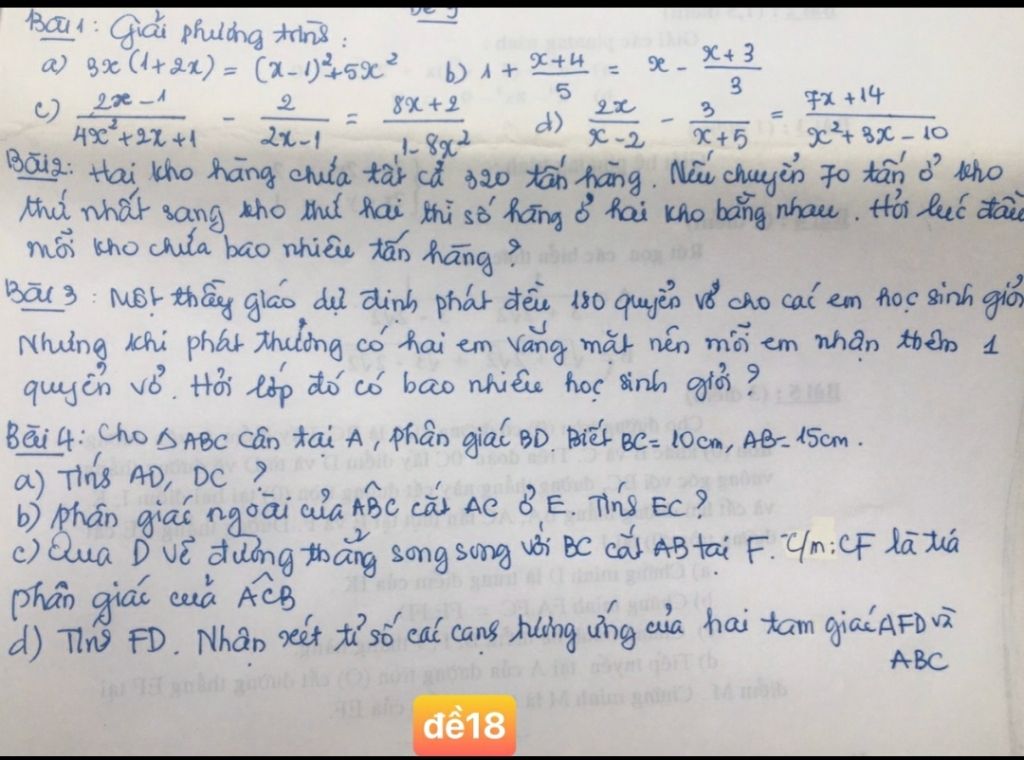 Bài 1: Giải phương trình:
a) 3x(1+2x) = (x-1)²+5x² b) 1 + \frac{x+4}{5} = x - \frac{x+3}{3}
c) \frac{2x-1}{4x²+2x+1} - \frac{2}{2x-1} = \frac{8x+2}{1-8x²} d) \frac{2x}{x-2} - \frac{3}{x+5} = \frac{7x+14}{x²+3x-10}
Bài 2: Hai kho hàng chứa tất cả 320 tấn hàng. Nếu chuyển 70 tấn ở kho
thứ nhất sang kho thứ hai thì số hàng ở hai kho bằng nhau. Hỏi lúc đầu
mỗi kho chứa bao nhiêu tấn hàng?
Bài 3: Một thầy giáo dự định phát đều 180 quyển vở cho các em học sinh giỏi
Nhưng khi phát thưởng có hai em vắng mặt nên mỗi em nhận thêm 1
quyển vở. Hỏi lớp đó có bao nhiêu học sinh giỏi?
Bài 4: Cho △ABC cân tại A, phân giác BD. Biết BC = 10cm, AB = 15cm.
a) Tính AD, DC?
b) phân giác ngoài của ABC cắt AC ở E. Tính EC?
c) Qua D vẽ đường thẳng song song với BC cắt AB tại F. C/m: CF là tia
phân giác của ACB
d) Tính FD. Nhận xét tỉ số các cạnh tương ứng của hai tam giác AFD và
ABC
đề18